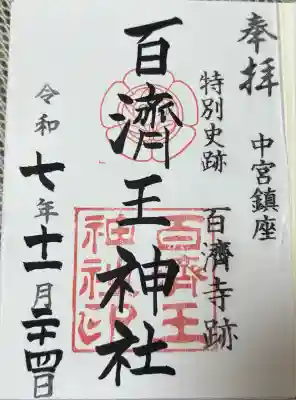 奉拝
中宮鎮座
特別史跡 百濟寺跡
百濟王神社
百濟王神社印
令和七年十一月二十四日